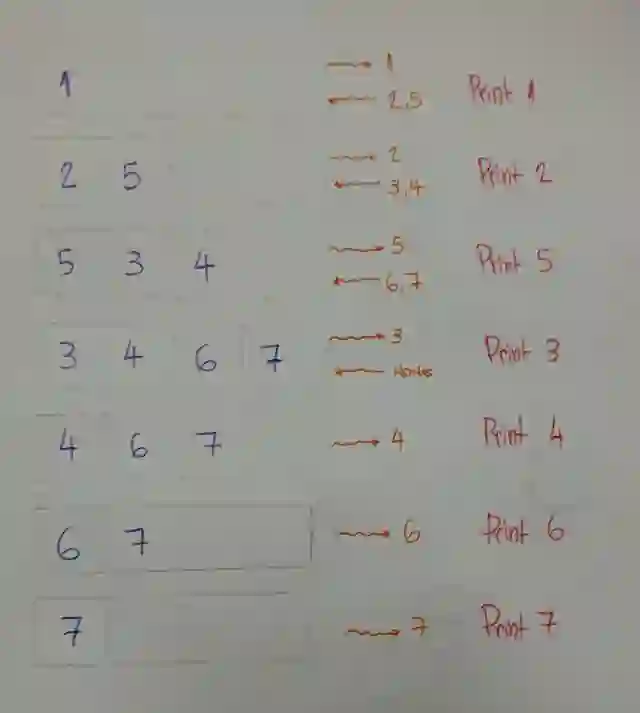 1 → 1
← 2,5 Print 1
2 5 → 2
← 3,4 Print 2
5 3 4 → 5
← 6,7 Print 5
3 4 6 7 → 3
← Print 3
4 6 7 → 4 Print 4
6 7 → 6 Print 6
7 → 7 Print 7